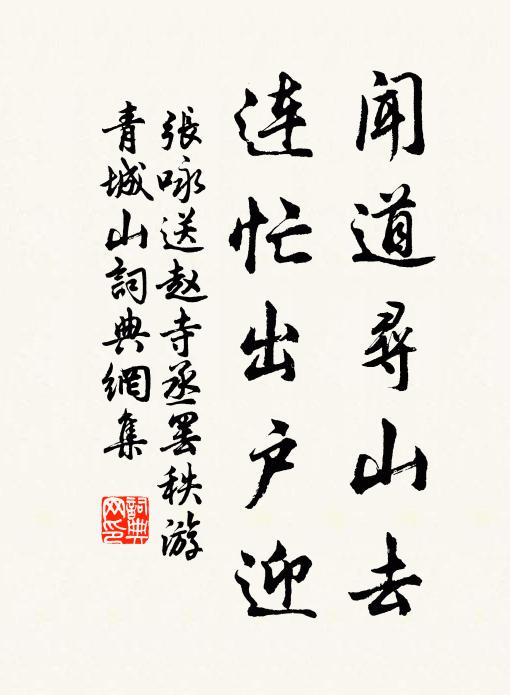 闻道尋山去
连忙出户迎
張咏送赵寺丞罢秩游
青城山詞典網集
詞典
网印